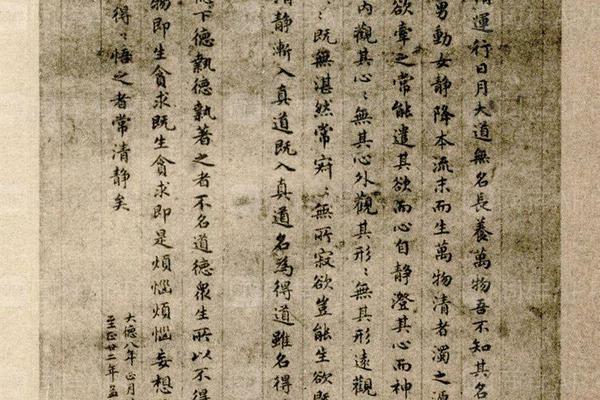 運行日月大道無名長養萬物吾不知其名
男動女静降本流末而生萬物清者濁之源
欲牽之常能遣其欲而心自静澄其心而神
內觀其心〻無其心外觀其形〻無其形遠觀
〻既無湛然常寂〻無所寂欲豈能生欲既
清静漸入真道既入真道名為得道雖名得
下德執德執著之者不名道德眾生所以不得
物即生貪求既生貪求即是煩惱煩惱妄想
得〻悟之者常清静矣
大德八年正月
至正廿二年孟